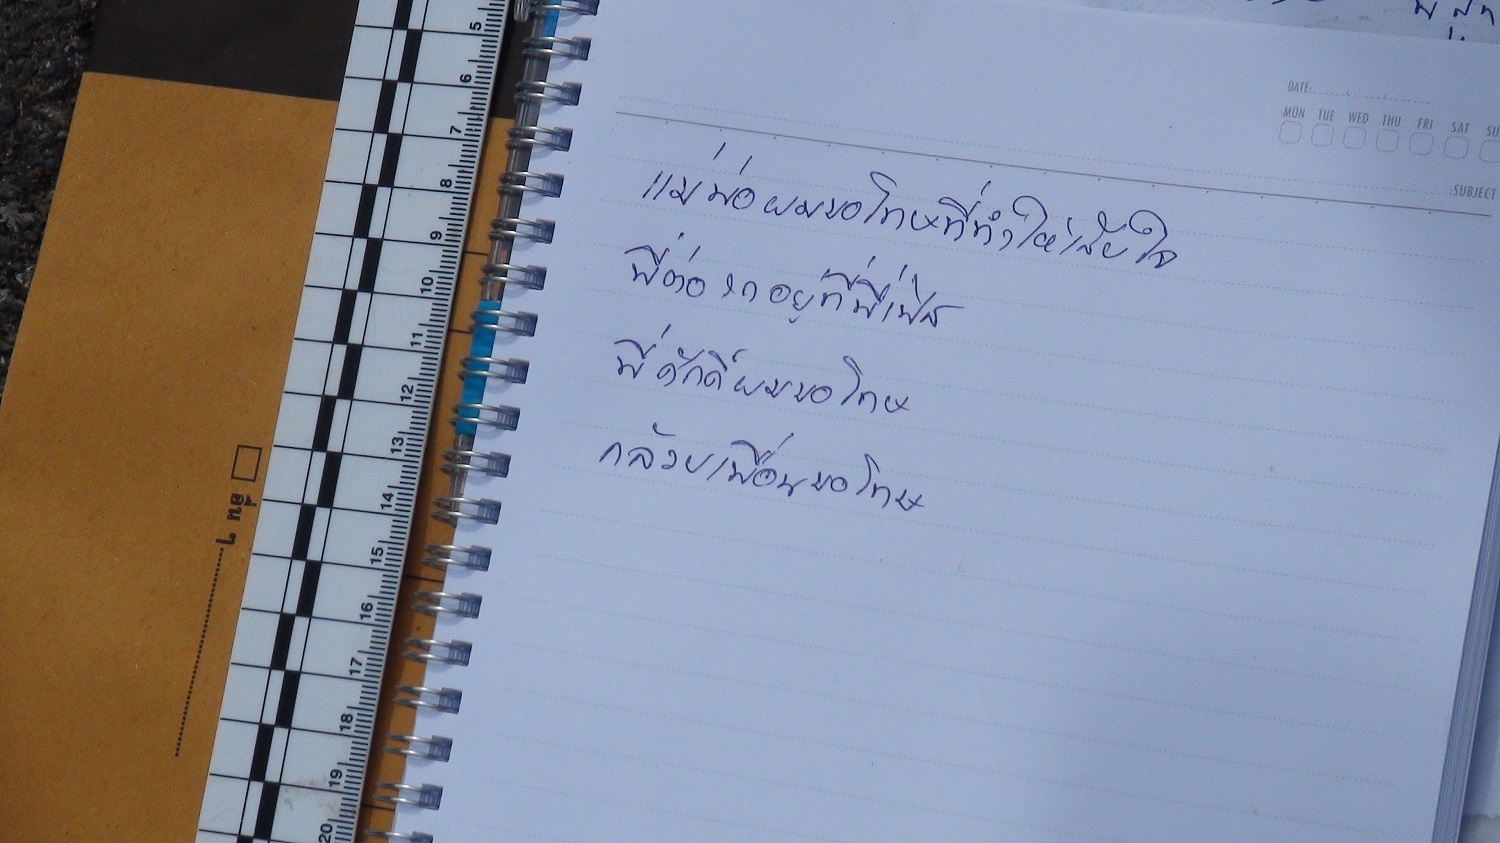 แม่พ่อผมขอโทษที่ทำให้เสียใจ
พี่ต่อ รถ อยู่ที่พี่เฟิส
พี่ศักดิ์ผมขอโทษ
กล้วยเพื่อนขอโทษ
DATE:
MON TUE WED THU FRI SAT SU
SUBJECT
อื่น ๆ
5
6
7
8
9
10
11
12
13
14
15
16
17
18
19
20